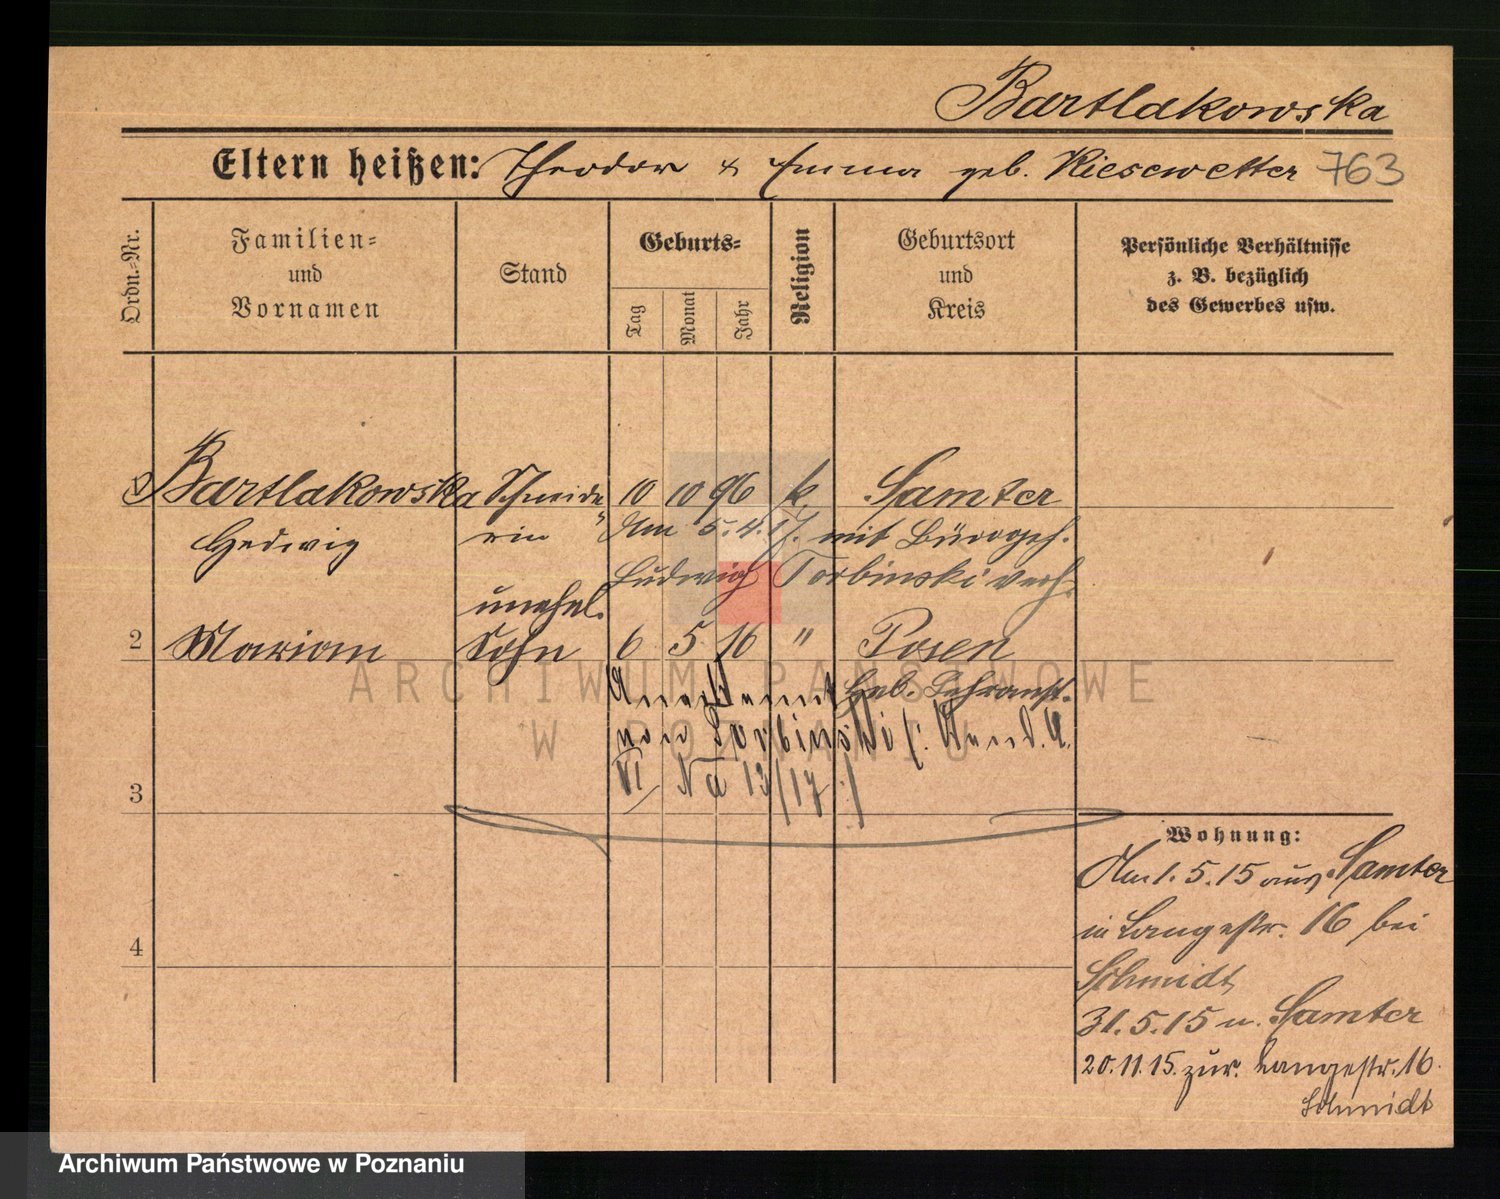 Bartlakowska
Eltern heißen: Theodor & Emma geb. Kiesewetter 763
Ordn.-Nr.
Familien-
und
Vornamen
Stand
Geburts-
Tag
Monat
Jahr
Religion
Geburtsort
und
Kreis
Persönliche Verhältnisse
z. B. bezüglich
des Gewerbes usw.
Bartlakowska Schneide 10 10 96 k. Samter
Hedwig rin Am 5.4.17. mit Bürogeh.
Ludwig Torbinski verh.
unehel.
2 Marian Sohn 6 5 16 " Posen
Anerkannt Geb.
von Torbinski
VI No 13/17
3
4
Wohnung:
Am 1.5.15 aus Samter
in Langestr. 16 bei
Schmidt
31.5.15 n. Samter
20.11.15. zur. Langestr. 16.
Schmidt
ARCHIWUM PAŃSTWOWE
W POZNANIU
Archiwum Państwowe w Poznaniu